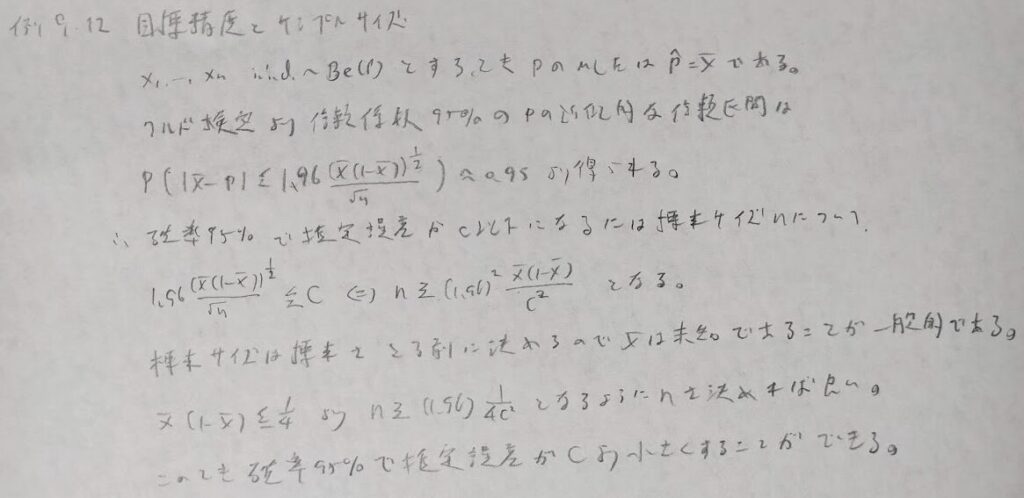 例9.12 目標精度とサンプルサイズ
X₁,…,Xn i.i.d. ~ Be(P) とする,とき PのMLEは P̂=X̄ である。
ワルド検定より 信頼係数 95%の Pの近似的な信頼区間は
P(|X̄-P| ≤ 1.96 (X̄(1-X̄))^{1/2}/√n) ≈ 0.95 より得られる。
∴ 確率95% で推定誤差が C以下になるには標本サイズnについて,
1.96 (X̄(1-X̄))^{1/2}/√n ≤ C ⇔ n ≥ (1.96)² X̄(1-X̄)/C² となる。
標本サイズは標本をとる前に決めるので X̄は未知であることが一般的である。
X̄(1-X̄) ≤ 1/4 より n ≥ (1.96) 1/4C² となるようにnを決めれば良い。
このとき確率95%で推定誤差がCより小さくすることができる。